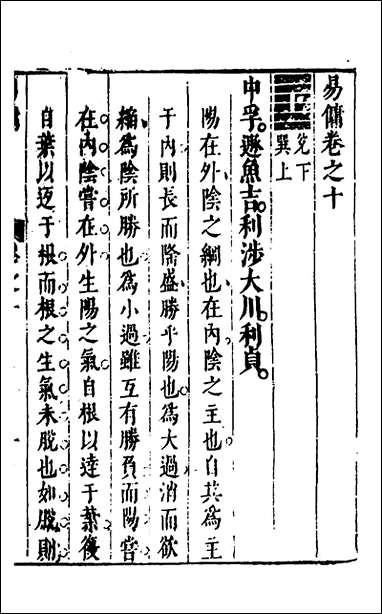 易傭卷之十
兌下
巽上
中孚遯魚吉利涉大川利貞
陽在外陰之綱也在內陰之主也自其為主
于內則長而隆盛勝乎陽也為大過消而欲
為陰所勝也為小過雖互有勝負而陽嘗
在內陰嘗在外生陽之氣自根以達于葉後
自葉以返于根而根之生氣未脫也如脫則